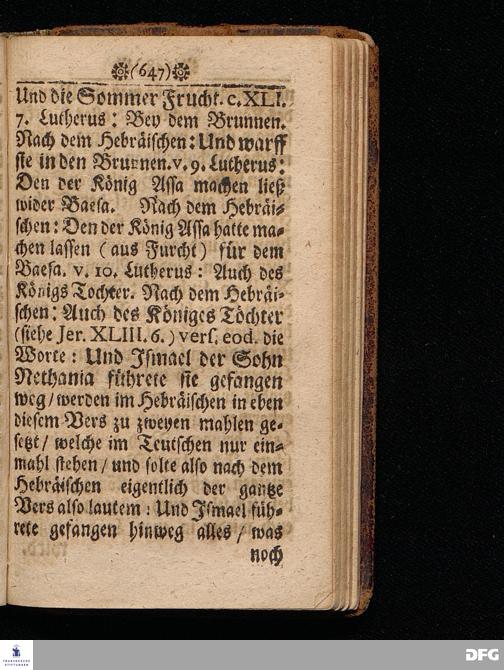 (647)
Und die Sommer Frucht. c. XLI.
7. Lutherus: Bey dem Brunnen.
Nach dem Hebräischen: Und warff
sie in den Brunnen. v. 9. Lutherus:
Den der König Assa machen ließ
wider Baesa. Nach dem Hebräi-
schen: Den der König Assa hatte ma-
chen lassen (aus Furcht) für dem
Baesa. v. 10. Lutherus: Auch des
Königs Tochter. Nach dem Hebräi-
schen: Auch des Königes Töchter
(siehe Jer. XLIII. 6.) vers. eod. die
Worte: Und Ismael der Sohn
Nethania führete sie gefangen
weg / werden im Hebräischen in eben
diesem Vers zu zweyen mahlen ge-
setzt / welche im Teutschen nur ein-
mahl stehen / und solte also nach dem
Hebräischen eigentlich der gantze
Vers also lautem: Und Ismael füh-
rete gefangen hinweg alles / was
noch
FRANCKESCHE
STIFTUNGEN
DFG